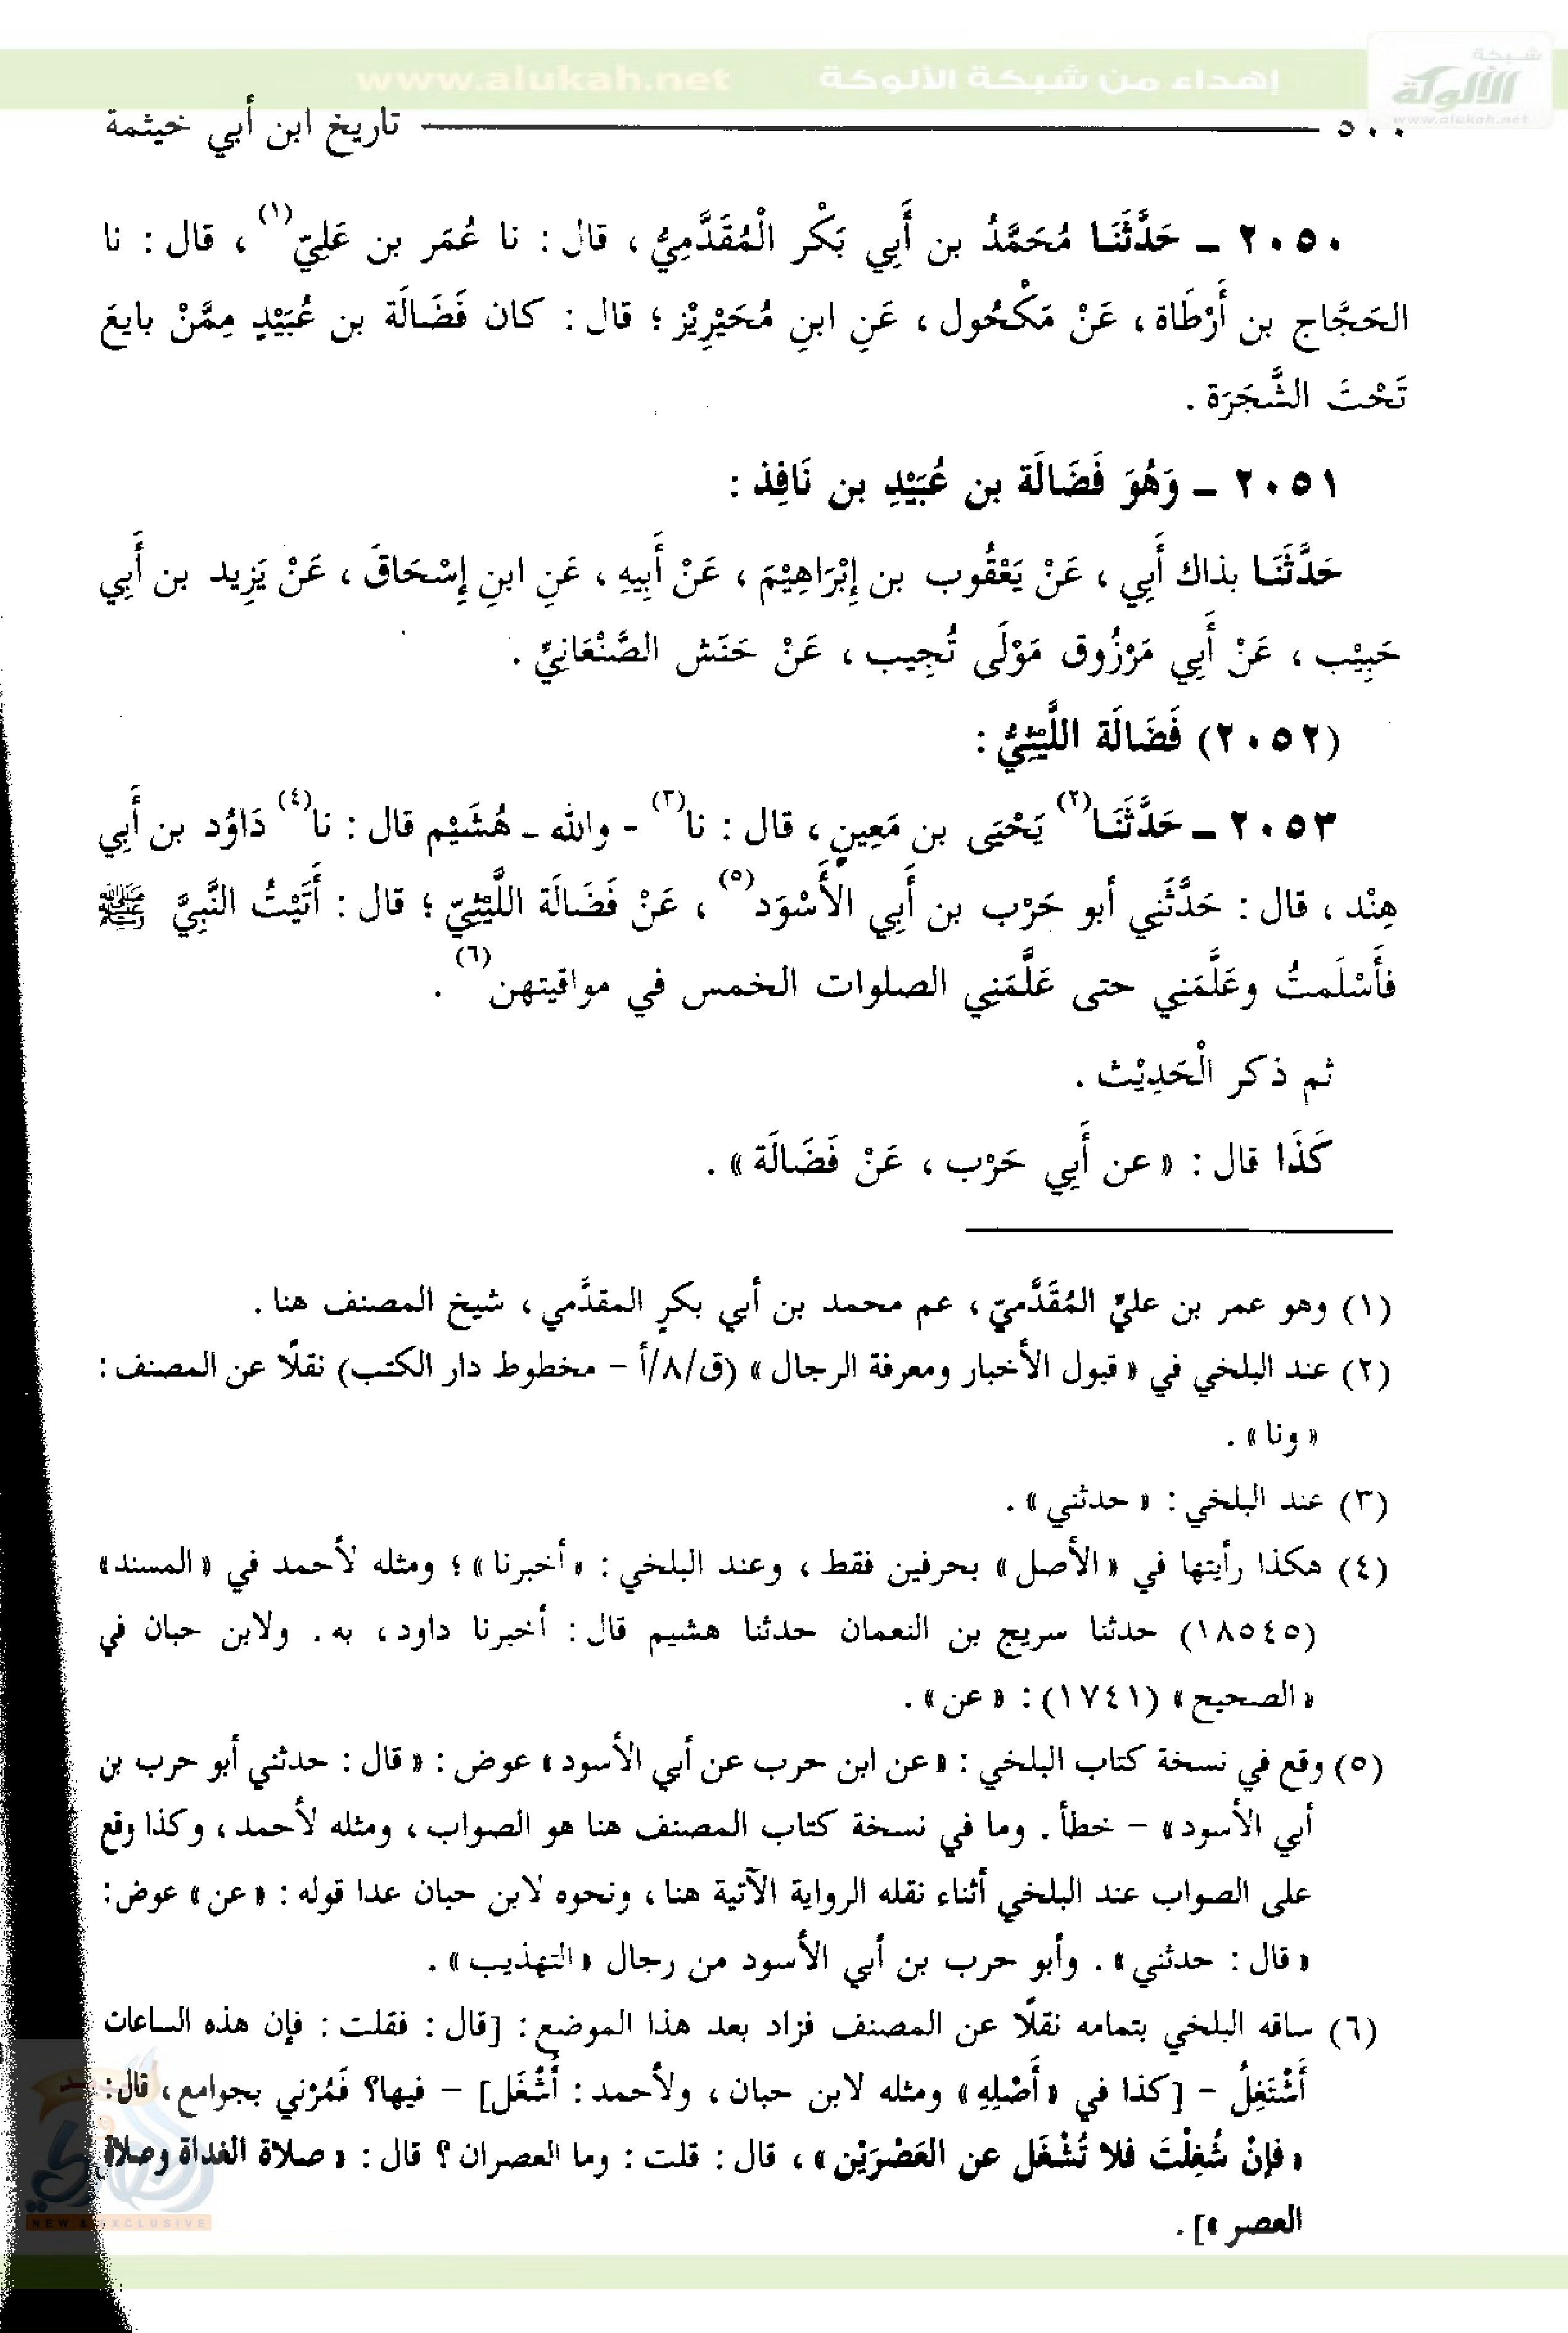 شبكة
الألوكة
www.alukah.net
إهداء من شبكة الألوكة www.alukah.net
٥٠٠ تاريخ ابن أبي خيثمة
٢٠٥٠ - حَدَّثَنَا مُحَمَّدُ بن أَبِي بَكْر الْمُقَدَّمِيُّ ، قال : نا عُمَر بن عَلِيّ(١) ، قال : نا
الحَجَّاج بن أَرْطَاة ، عَنْ مَكْحُول ، عَنِ ابنِ مُحَيْرِيْز ؛ قال : كان فَضَالَة بن عُبَيْدٍ مِمَّنْ بايعَ
تَحْتَ الشَّجَرَة .
٢٠٥١ - وَهُوَ فَضَالَة بن عُبَيْدِ بن نَافِذ :
حَدَّثَنَا بذاك أَبِي ، عَنْ يَعْقُوب بن إِبْرَاهِيْمَ ، عَنْ أَبِيهِ ، عَنِ ابنِ إِسْحَاقَ ، عَنْ يَزِيد بن أَبِي
حَبِيْب ، عَنْ أَبِي مَرْزُوق مَوْلَى تُجِيب ، عَنْ حَنَش الصَّنْعَانِيِّ .
(٢٠٥٢) فَضَالَة اللَّيْثِيُّ :
٢٠٥٣ - حَدَّثَنَا(٢) يَحْيَى بن مَعِينٍ ، قال : نا(٣) - والله - هُشَيْم قال : نا(٤) دَاوُد بن أَبِي
هِنْد ، قال : حَدَّثَنِي أبو حَرْب بن أَبِي الأَسْوَد(٥) ، عَنْ فَضَالَة اللَّيْثِيّ ؛ قال : أَتَيْتُ النَّبِيَّ ﷺ
فأَسْلَمتُ وعَلَّمَنِي حتى عَلَّمَنِي الصلوات الخمس في مواقيتهن(٦) .
ثم ذكر الْحَدِيْث .
كَذَا قال : « عن أَبِي حَرْب ، عَنْ فَضَالَة » .
(١) وهو عمر بن عليٍّ المُقَدَّميّ ، عم محمد بن أبي بكرٍ المقدَّمي ، شيخ المصنف هنا .
(٢) عند البلخي في « قبول الأخبار ومعرفة الرجال » (ق/٨/أ - مخطوط دار الكتب) نقلًا عن المصنف :
« ونا » .
(٣) عند البلخي : « حدثني » .
(٤) هكذا رأيتها في « الأصل » بحرفين فقط ، وعند البلخي : « أخبرنا » ؛ ومثله لأحمد في « المسند »
(١٨٥٤٥) حدثنا سريج بن النعمان حدثنا هشيم قال : أخبرنا داود ، به . ولابن حبان في
« الصحيح » (١٧٤١) : « عن » .
(٥) وقع في نسخة كتاب البلخي : « عن ابن حرب عن أبي الأسود » عوض : « قال : حدثني أبو حرب بن
أبي الأسود » - خطأ . وما في نسخة كتاب المصنف هنا هو الصواب ، ومثله لأحمد ، وكذا وقع
على الصواب عند البلخي أثناء نقله الرواية الآتية هنا ، ونحوه لابن حبان عدا قوله : « عن » عوض :
« قال : حدثني » . وأبو حرب بن أبي الأسود من رجال « التهذيب » .
(٦) ساقه البلخي بتمامه نقلًا عن المصنف فزاد بعد هذا الموضع : [قال : فقلت : فإن هذه الساعات
أَشْتَغِلُ - [كذا في « أَصْلِهِ » ومثله لابن حبان ، ولأحمد : أُشْغَل] - فيها؟ فَمُرْني بجوامع ، قال :
« فإنْ شُغِلْتَ فلا تُشْغَل عن العَصْرَيْن » ، قال : قلت : وما العصران ؟ قال : « صلاة الغداة وصلاة
العصر »] .
NEW & EXCLUSIVE